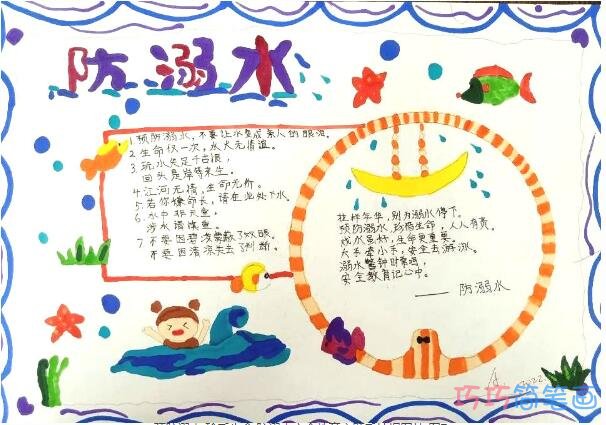 防溺水
1.预防溺水,不要让水变成亲人的眼泪。
2.生命仅一次,水火无情道。
3.玩水失足千古恨,
回头是岸待来生。
4.江河无情,生命无价。
5.若你嫌命长,请在此处下水。
6.水中非天堂,
涉水请慎重。
7.不要因碧波蒙蔽了双眼。
不要因清凉失去了判断。
壮样年华,别为溺水停下。
预防溺水,珍惜生命,人人有责。
戏水虽好,生命更重要。
大手牵小手,安全去游泳。
溺水警钟时常鸣,
安全教育记心中。
——防溺水
2022
巧巧简笔画